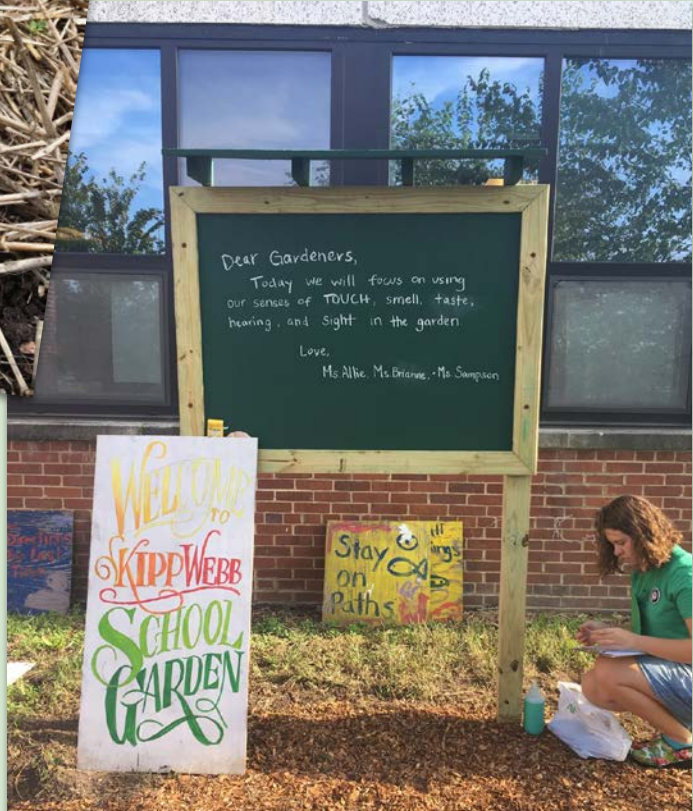 Dear Gardeners,
Today we will focus on using
our senses of TOUCH, smell, taste,
hearing, and sight in the garden.
Love,
Ms. Allie, Ms. Brianne, + Ms. Sampson
WELCOME
TO
KIPP WEBB
SCHOOL
GARDEN
Stay
on
Paths